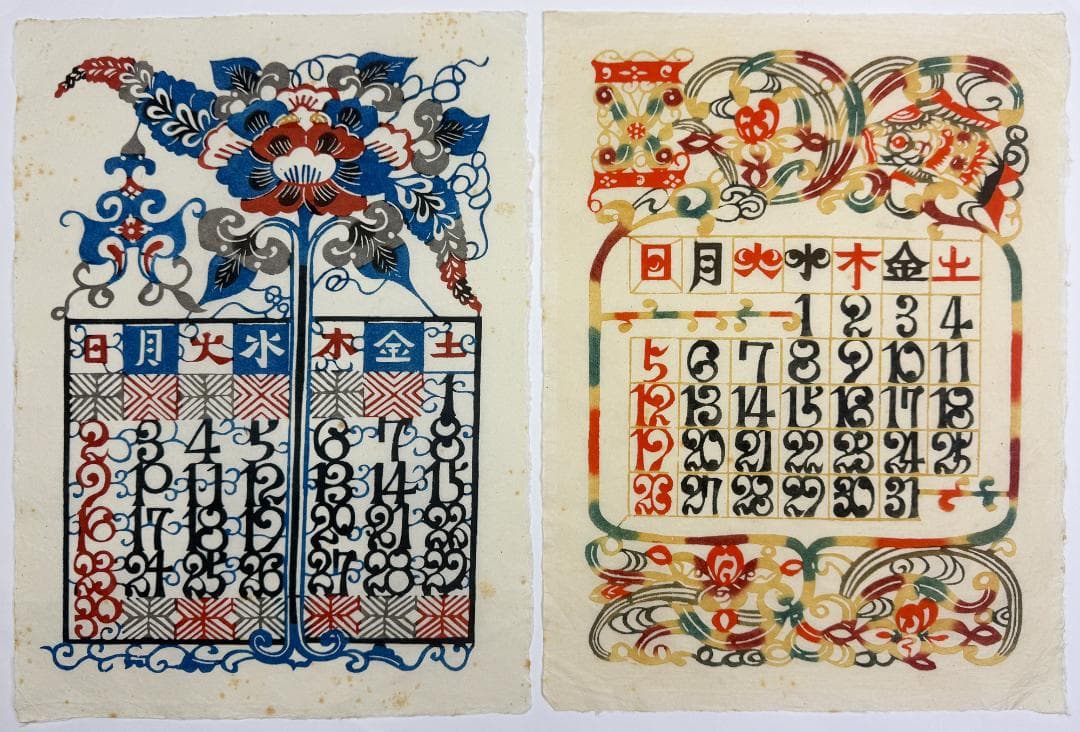 日 月 火 水 木 金 土
1
2 3 4 5 6 7 8
9 10 11 12 13 14 15
16 17 18 19 20 21 22
23 24 25 26 27 28 29
30
日 月 火 水 木 金 土
1 2 3 4
5 6 7 8 9 10 11
12 13 14 15 16 17 18
19 20 21 22 23 24 25
26 27 28 29 30 31